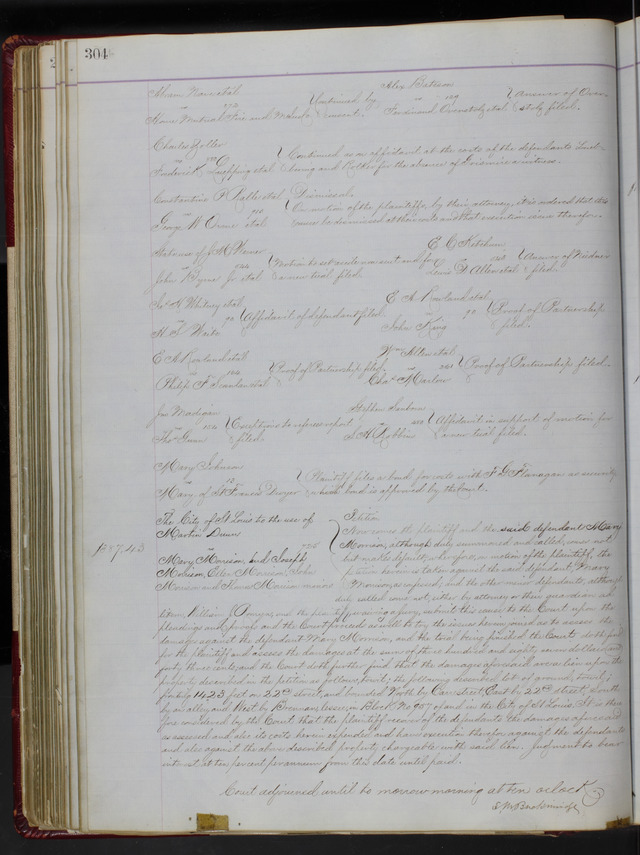 304
Alex Bateson
Continued by answer of Over-
Home Mutual Fire and consent. Ferdinand Overstolz etal stolz filed.
Charles Zoller
Continued as on affidavit at the costs of the defendants
Frederick etal and for the absence of a witness.
Constantine P Ralls etal Dismissed.
On motion of the plaintiffs, by their attorney, it is ordered that this
George W etal cause be dismissed at their costs and that execution issue therefor.
E C Ketchum
Motion to set aside non suit and for Answer of
John Byrne Jr etal a new trial filed. Lewis G Allen etal filed.
Jos H Whitney etal E A Rowland etal
90 Affidavit of defendant filed. 90 Proof of Partnership
H L Waite John King filed.
E A Rowland etal Wm Allen etal
Proof of Partnership filed. Proof of Partnership filed.
Philip F Scanlan etal Chas Marlow
Jno Madigan Stephen
Exceptions to referees report Affidavit in support of motion for
filed. S H Robbin a new trial filed.
Mary Johnson
Plaintiff files a bond for costs with F D Flanagan as security
Mary of St Francis Dwyer which bond is approved by the Court.
The City of St Louis to the use of Petition
Martin Now comes the plaintiff and the said defendant Mary
$387.43 Morrison, although duly summoned and called, comes not
Mary Morrison, and Joseph but makes default; wherefore, on motion of the plaintiff, the
Morrison, Ellen Morrison, John petition herein is taken against the said defendant, Mary
Morrison and Morrison minors Morrison, as confessed, and the other minor defendants, although
duly called come not, either by attorney or their guardian ad
litem, William and the plaintiff waiving a jury, submit this cause to the Court upon the
pleadings and proofs and the Court proceeds as well to try the issues herein joined as to assess the
damages against the defendant Mary Morrison, and the trial being finished the Court doth find
for the plaintiff and assess the damages at the sum of three hundred and eighty seven dollars and
forty three cents, and the Court doth further find that the damages aforesaid are a lien upon the
property described in the petition as follows, to wit; the following described lot of ground, to wit;
fronting 142.3 feet on 22nd street, and bounded North by Carr street, East by 22nd street, South
by an alley, and West by in Block No 907 of and in the City of St Louis. It is there-
fore considered by the Court that the plaintiff recover of the defendants the damages aforesaid
as assessed and also its costs herein expended and have execution therefor against the defendants
and also against the above described property, chargeable with said lien. Judgment to bear
interest at ten percent per annum from this date until paid.
Court adjourned until to morrow morning at ten oclock